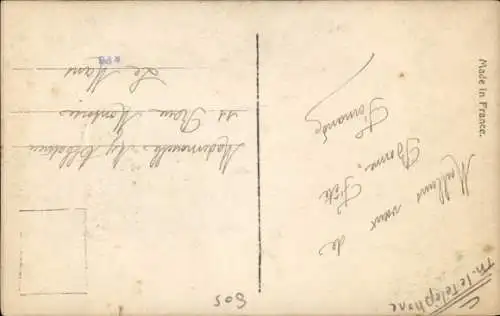 Made in France.
Meilleurs vœux de
Bonne Fête
Fernande
Mademoiselle
Rue
Le Mans
Th. le Téléphone
505